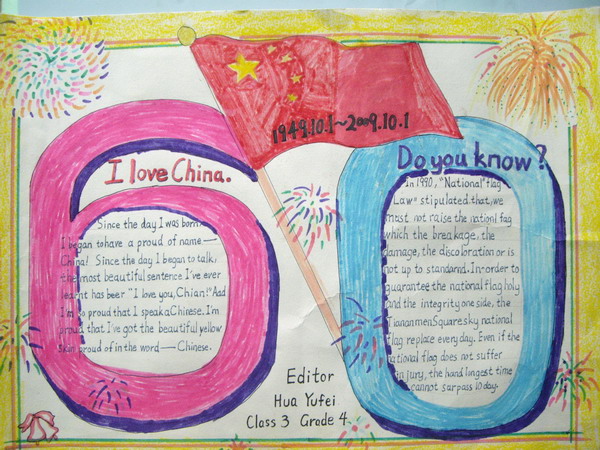 1949.10.1~2009.10.1
I love China.
Since the day I was born
I began to have a proud of name —
China! Since the day I began to talk,
the most beautiful sentence I've ever
learnt has beer "I love you, Chian!" And
I'm so proud that I speak Chinese. I'm
proud that I've got the beautiful yellow
skin proud of in the word — Chinese.
Do you know?
In 1990, "National flag
Law" stipulated that, we
must not raise the nationl fag
which the breakage, the
damage, the discoloration or is
not up to standarnd. In order to
guarantee the national flag holy
and the integrity one side, the
Tiananmen Square sky national
flag replace every day. Even if the
national flag does not suffer
injury, the hand lingest time
cannot surpass 10 day.
Editor
Hua Yufei
Class 3 Grade 4